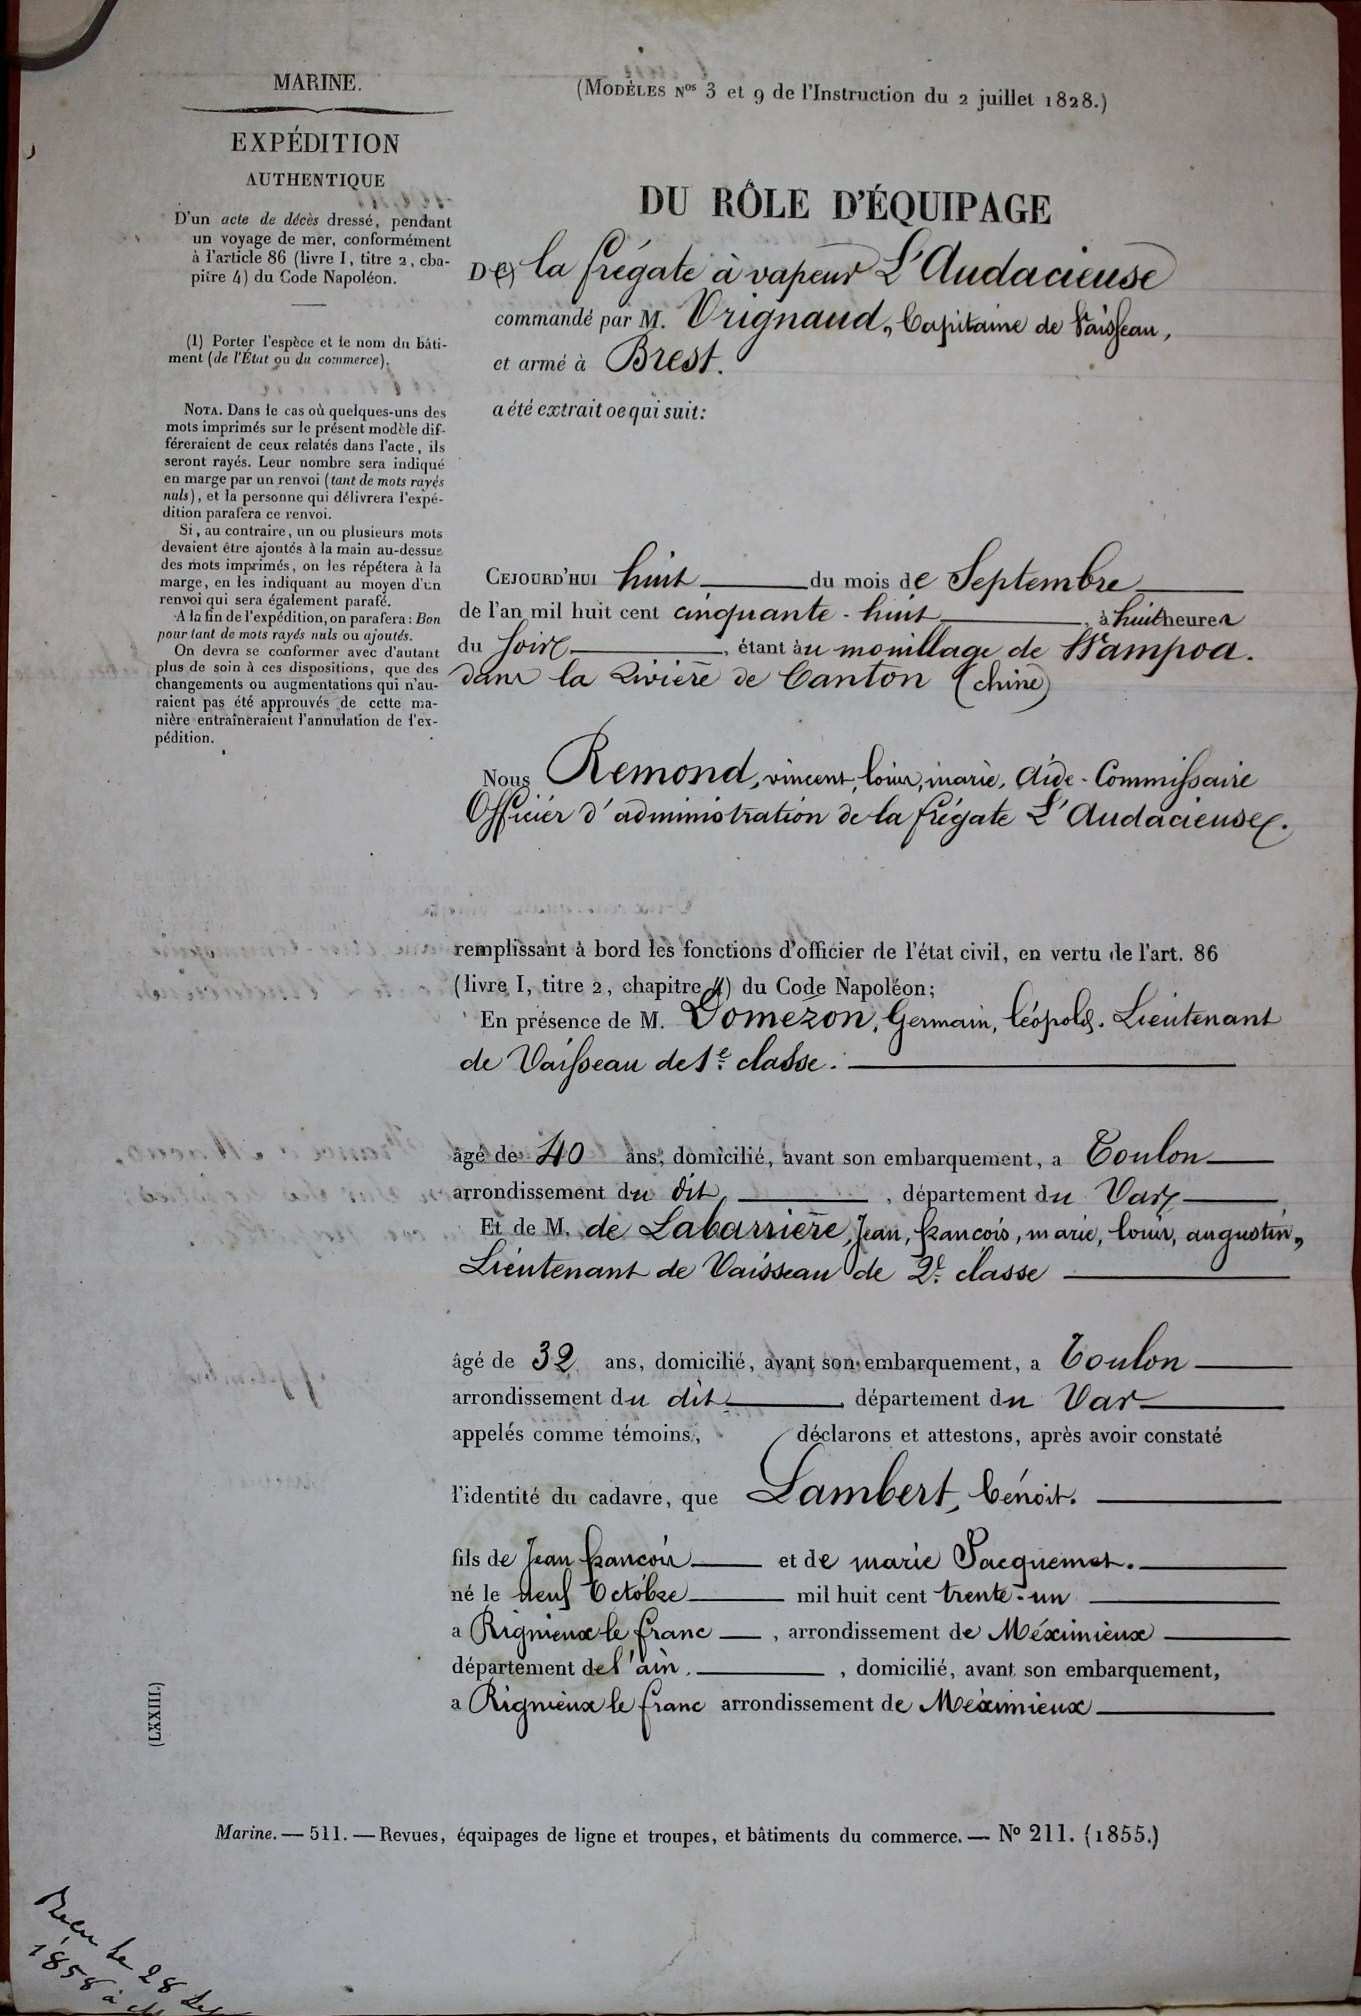 MARINE.
EXPÉDITION
AUTHENTIQUE
D'un acte de décès dressé, pendant
un voyage de mer, conformément
à l'article 86 (livre I, titre 2, cha-
pitre 4) du Code Napoléon.
(1) Porter l'espèce et le nom du bâti-
ment (de l'État ou du commerce).
NOTA. Dans le cas où quelques-uns des
mots imprimés sur le présent modèle dif-
féreraient de ceux relatés dans l'acte, ils
seront rayés. Leur nombre sera indiqué
en marge par un renvoi (tant de mots rayés
nuls), et la personne qui délivrera l'expé-
dition parafera ce renvoi.
Si, au contraire, un ou plusieurs mots
devaient être ajoutés à la main au-dessus
des mots imprimés, on les répétera à la
marge, en les indiquant au moyen d'un
renvoi qui sera également parafé.
A la fin de l'expédition, on parafera: Bon
pour tant de mots rayés nuls ou ajoutés.
On devra se conformer avec d'autant
plus de soin à ces dispositions, que des
changements ou augmentations qui n'au-
raient pas été approuvés de cette ma-
nière entraîneraient l'annulation de l'ex-
pédition.
(MODÈLES Nos 3 et 9 de l'Instruction du 2 juillet 1828.)
DU RÔLE D'ÉQUIPAGE
De la frégate à vapeur L'Audacieuse
commandé par M. Vrignaud, Capitaine de Vaisseau,
et armé à Brest.
a été extrait ce qui suit:
CEJOURD'HUI huit du mois de Septembre
de l'an mil huit cent cinquante-huit, à huit heures
du soir, étant au mouillage de Wampoa.
dans la Rivière de Canton (chine)
Nous Remond, vincent, louis, marie, Aide-Commissaire
Officier d'administration de la frégate L'Audacieuse.
remplissant à bord les fonctions d'officier de l'état civil, en vertu de l'art. 86
(livre I, titre 2, chapitre 4) du Code Napoléon;
En présence de M. Gomézon, Germain, Léopold. Lieutenant
de Vaisseau de 1e classe.
âgé de 40 ans, domicilié, avant son embarquement, a Toulon
arrondissement du dit, département du Var
Et de M. de Labarrière, Jean, françois, marie, louis, augustin,
Lieutenant de Vaisseau de 2e classe
âgé de 32 ans, domicilié, avant son embarquement, a Toulon
arrondissement du dit, département du Var
appelés comme témoins, déclarons et attestons, après avoir constaté
l'identité du cadavre, que Lambert, bénoit.
fils de Jean françois et de marie Jacquemet.
né le neuf Octobre mil huit cent trente-un
a Rignieux le franc, arrondissement de Méximieux
département de l'ain, domicilié, avant son embarquement,
a Rignieux le franc arrondissement de Méximieux
(LXXIII.)
Marine. — 511. — Revues, équipages de ligne et troupes, et bâtiments du commerce. — No 211. (1855.)
Reçu le 28
1858 à